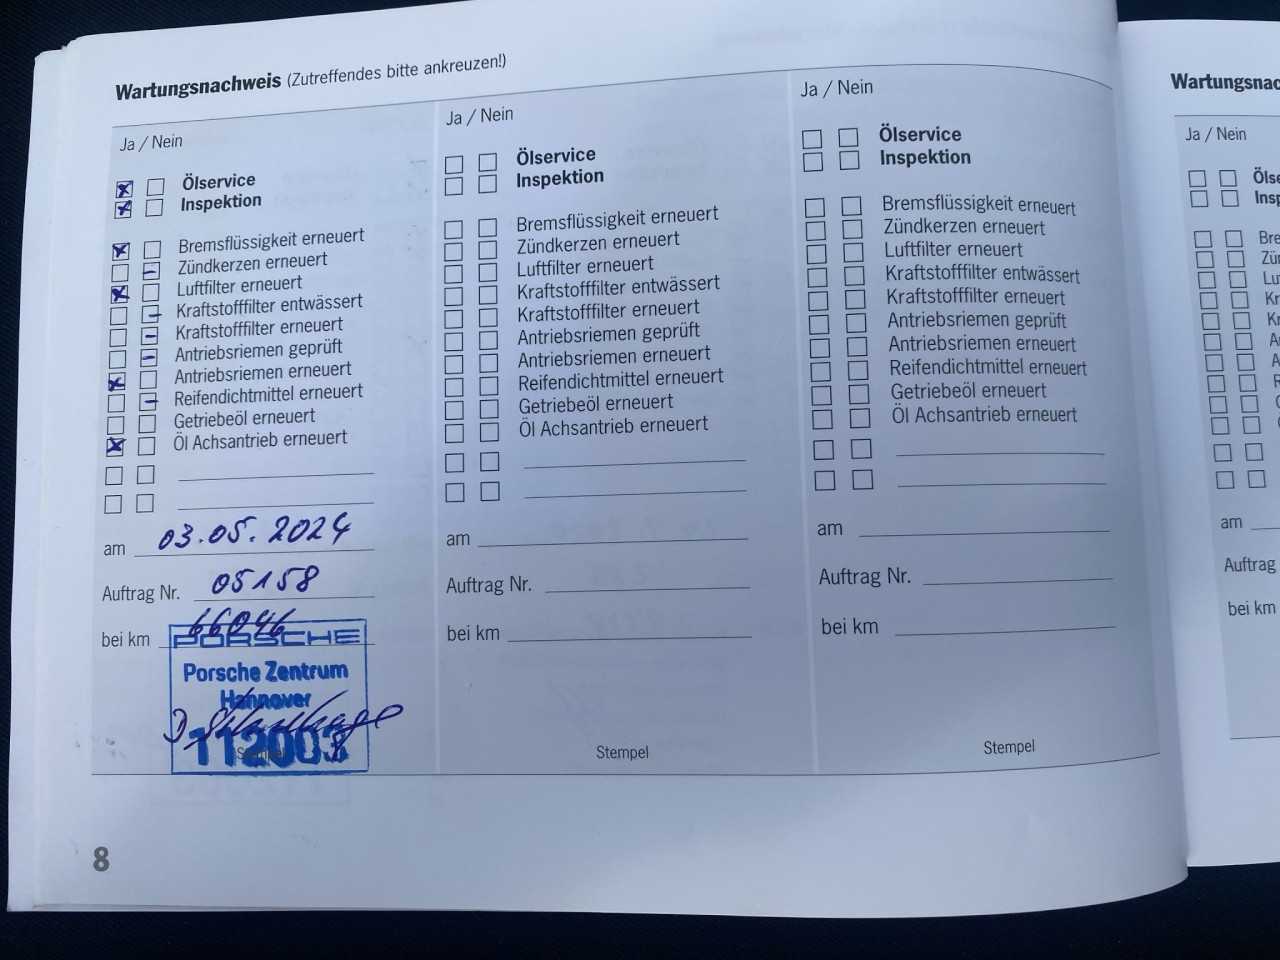 Wartungsnachweis (Zutreffendes bitte ankreuzen!)
Ja / Nein
Ölservice
Inspektion
Bremsflüssigkeit erneuert
Zündkerzen erneuert
Luftfilter erneuert
Kraftstofffilter entwässert
Kraftstofffilter erneuert
Antriebsriemen geprüft
Antriebsriemen erneuert
Reifendichtmittel erneuert
Getriebeöl erneuert
Öl Achsantrieb erneuert
am 03.05.2024
Auftrag Nr. 05158
bei km 66046
PORSCHE
Porsche Zentrum
Hannover
112003
Stempel
Ja / Nein
Ölservice
Inspektion
Bremsflüssigkeit erneuert
Zündkerzen erneuert
Luftfilter erneuert
Kraftstofffilter entwässert
Kraftstofffilter erneuert
Antriebsriemen geprüft
Antriebsriemen erneuert
Reifendichtmittel erneuert
Getriebeöl erneuert
Öl Achsantrieb erneuert
am
Auftrag Nr.
bei km
Stempel
Ja / Nein
Ölservice
Inspektion
Bremsflüssigkeit erneuert
Zündkerzen erneuert
Luftfilter erneuert
Kraftstofffilter entwässert
Kraftstofffilter erneuert
Antriebsriemen geprüft
Antriebsriemen erneuert
Reifendichtmittel erneuert
Getriebeöl erneuert
Öl Achsantrieb erneuert
am
Auftrag Nr.
bei km
Stempel
8
Wartungsnac
Ja / Nein
Ölse
Insp
Bre
Zün
Lu
Kr
K
A
A
R
am
Auftrag
bei km